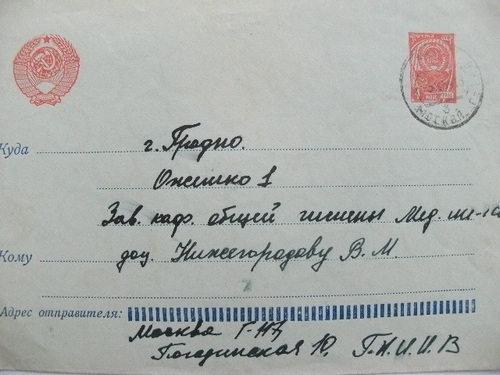 МОСКВА
Куда
г. Гродно.
Ожешко 1
Зав. каф. общей гигиены Мед. ин-та
Кому
доц. Нижегородову В. М.
Адрес отправителя:
Москва Г-117
Погодинская 10, Г.Н.И.И.В